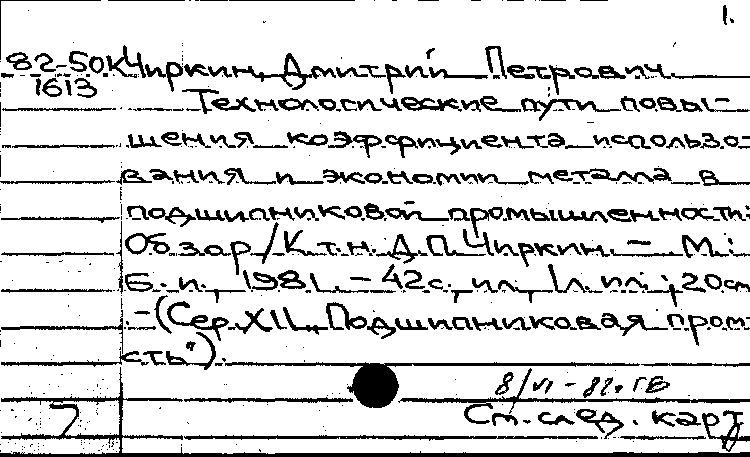 1.
82-50К Чиркин, Дмитрий Петрович.
1613
Технологические пути повы-
шения коэффициента использо-
вания и экономии металла в
подшипниковой промышленности:
Обзор/К.т.н. Д.П.Чиркин. – М.:
Б.и., 1981. – 42с., ил., 1л. ил.; 20см
. – (Сер.XII „Подшипниковая пром-
сть").
8/VI – 82. ГВ
7 См. след. карт